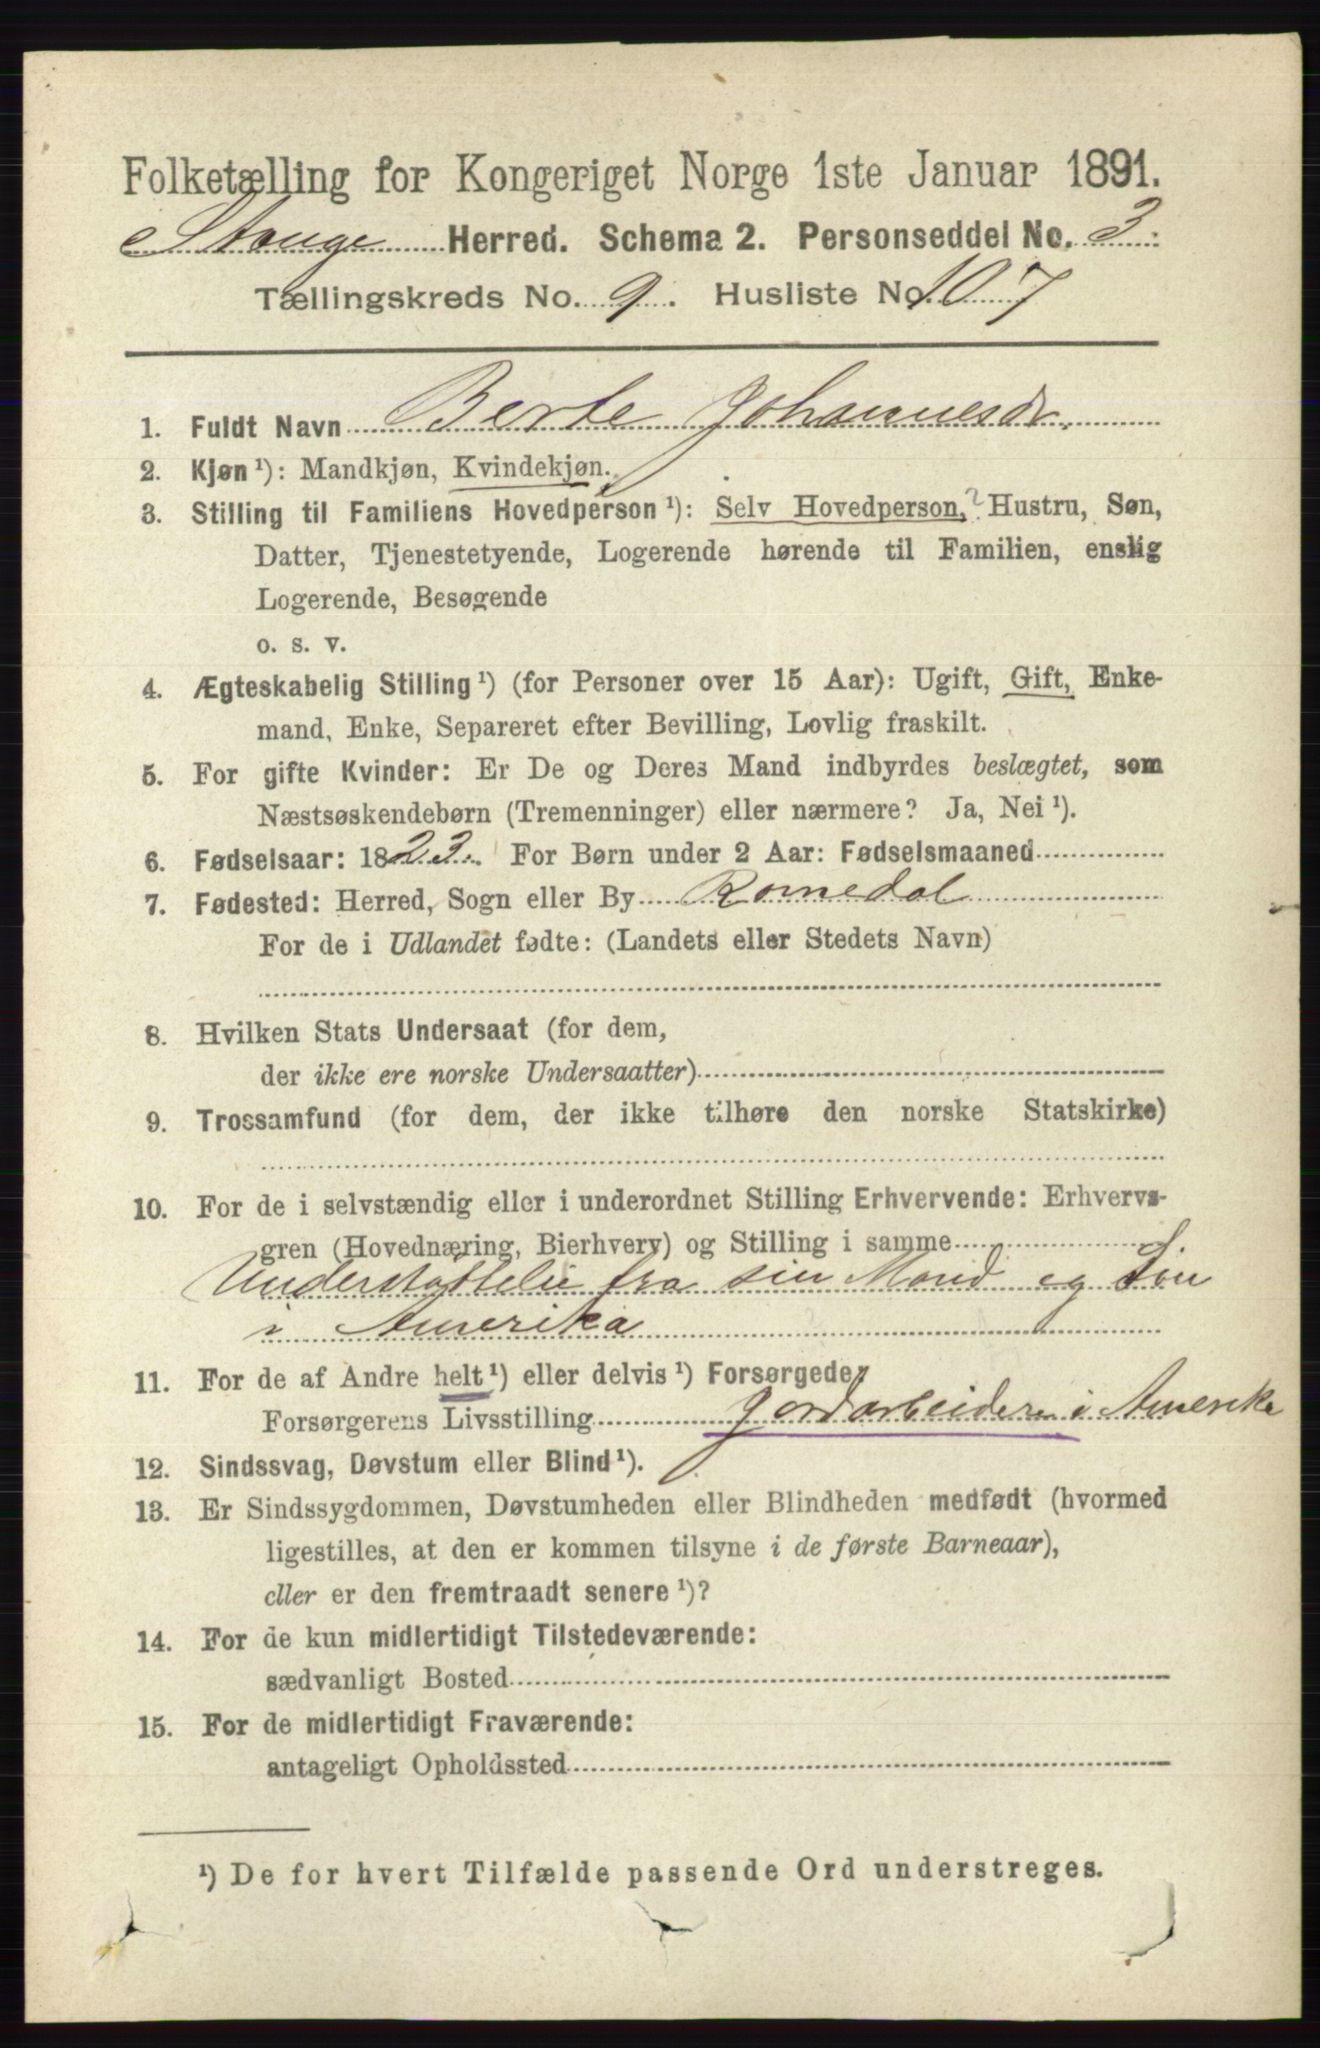 Folketælling for Kongeriget Norge 1ste Januar 1891.
Stange Herred. Schema 2. Personseddel No. 3.
Tællingskreds No. 9. Husliste No. 107
1. Fuldt Navn Berte Johannesdr.
2. Kjøn ¹): Mandkjøn, Kvindekjøn.
3. Stilling til Familiens Hovedperson ¹): Selv Hovedperson, ? Hustru, Søn,
Datter, Tjenestetyende, Logerende hørende til Familien, enslig
Logerende, Besøgende
o. s. v.
4. Ægteskabelig Stilling ¹) (for Personer over 15 Aar): Ugift, Gift, Enke-
mand, Enke, Separeret efter Bevilling, Lovlig fraskilt.
5. For gifte Kvinder: Er De og Deres Mand indbyrdes beslægtet, som
Næstsøskendebørn (Tremenninger) eller nærmere? Ja, Nei ¹).
6. Fødselsaar: 1823. For Børn under 2 Aar: Fødselsmaaned
7. Fødested: Herred, Sogn eller By Romedal
For de i Udlandet fødte: (Landets eller Stedets Navn)
8. Hvilken Stats Undersaat (for dem,
der ikke ere norske Undersaatter)
9. Trossamfund (for dem, der ikke tilhøre den norske Statskirke)
10. For de i selvstændig eller i underordnet Stilling Erhvervende: Erhvervs-
gren (Hovednæring, Bierhverv) og Stilling i samme
Understøttelse fra sin Mand og Søn
i Amerika
11. For de af Andre helt ¹) eller delvis ¹) Forsørgede,
Forsørgerens Livsstilling Jordarbeidere i Amerika
12. Sindssvag, Døvstum eller Blind ¹).
13. Er Sindssygdommen, Døvstumheden eller Blindheden medfødt (hvormed
ligestilles, at den er kommen tilsyne i de første Barneaar),
eller er den fremtraadt senere ¹)?
14. For de kun midlertidigt Tilstedeværende:
sædvanligt Bosted
15. For de midlertidigt Fraværende:
antageligt Opholdssted
¹) De for hvert Tilfælde passende Ord understreges.